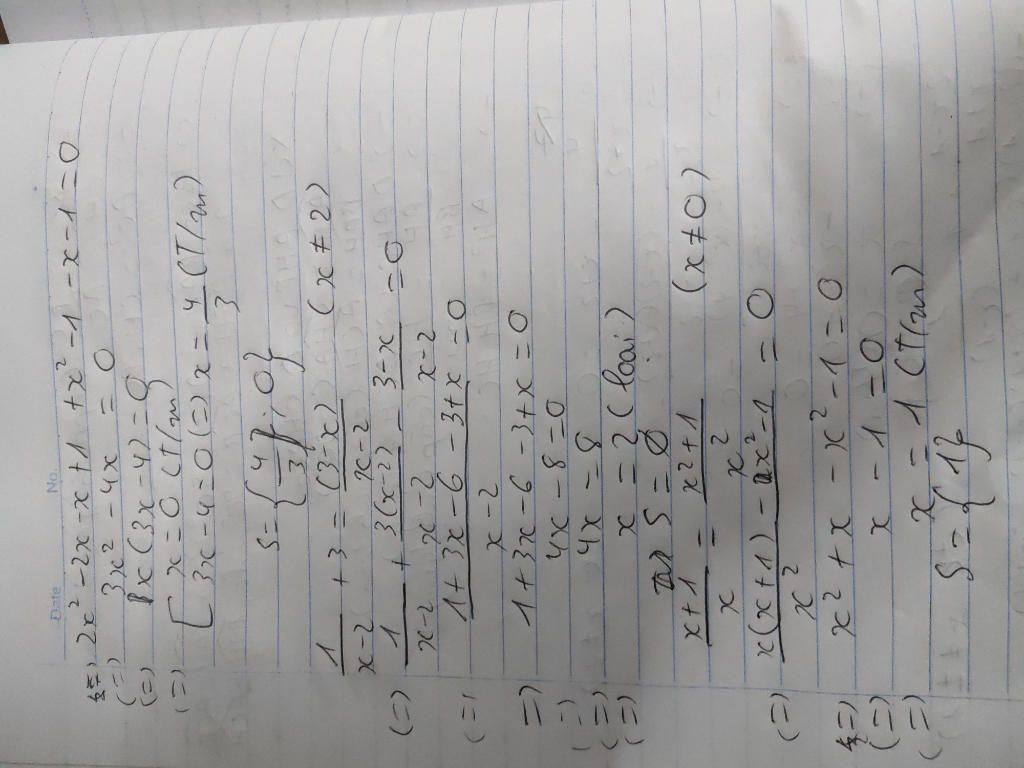 Date No.
⇒) 2x² - 2x - x + 1 + x² - 1 - x - 1 = 0
(=) 3x² - 4x = 0
(=) x(3x - 4) = 0
(=) [ x = 0 (T/m)
3x - 4 = 0 (=) x = 4/3 (T/m)
S = {4/3; 0}
1/(x-2) + 3 = (3-x)/(x-2) (x ≠ 2)
(=) 1/(x-2) + 3(x-2)/(x-2) - (3-x)/(x-2) = 0
(=) (1 + 3x - 6 - 3 + x)/(x-2) = 0
=) 1 + 3x - 6 - 3 + x = 0
(=) 4x - 8 = 0
(=) 4x = 8
(=) x = 2 (loại)
S = Ø
(x+1)/x = (x²+1)/x² (x ≠ 0)
(=) (x(x+1) - x² - 1)/x² = 0
=) x² + x - x² - 1 = 0
(=) x - 1 = 0
(=) x = 1 (T/m)
S = {1}